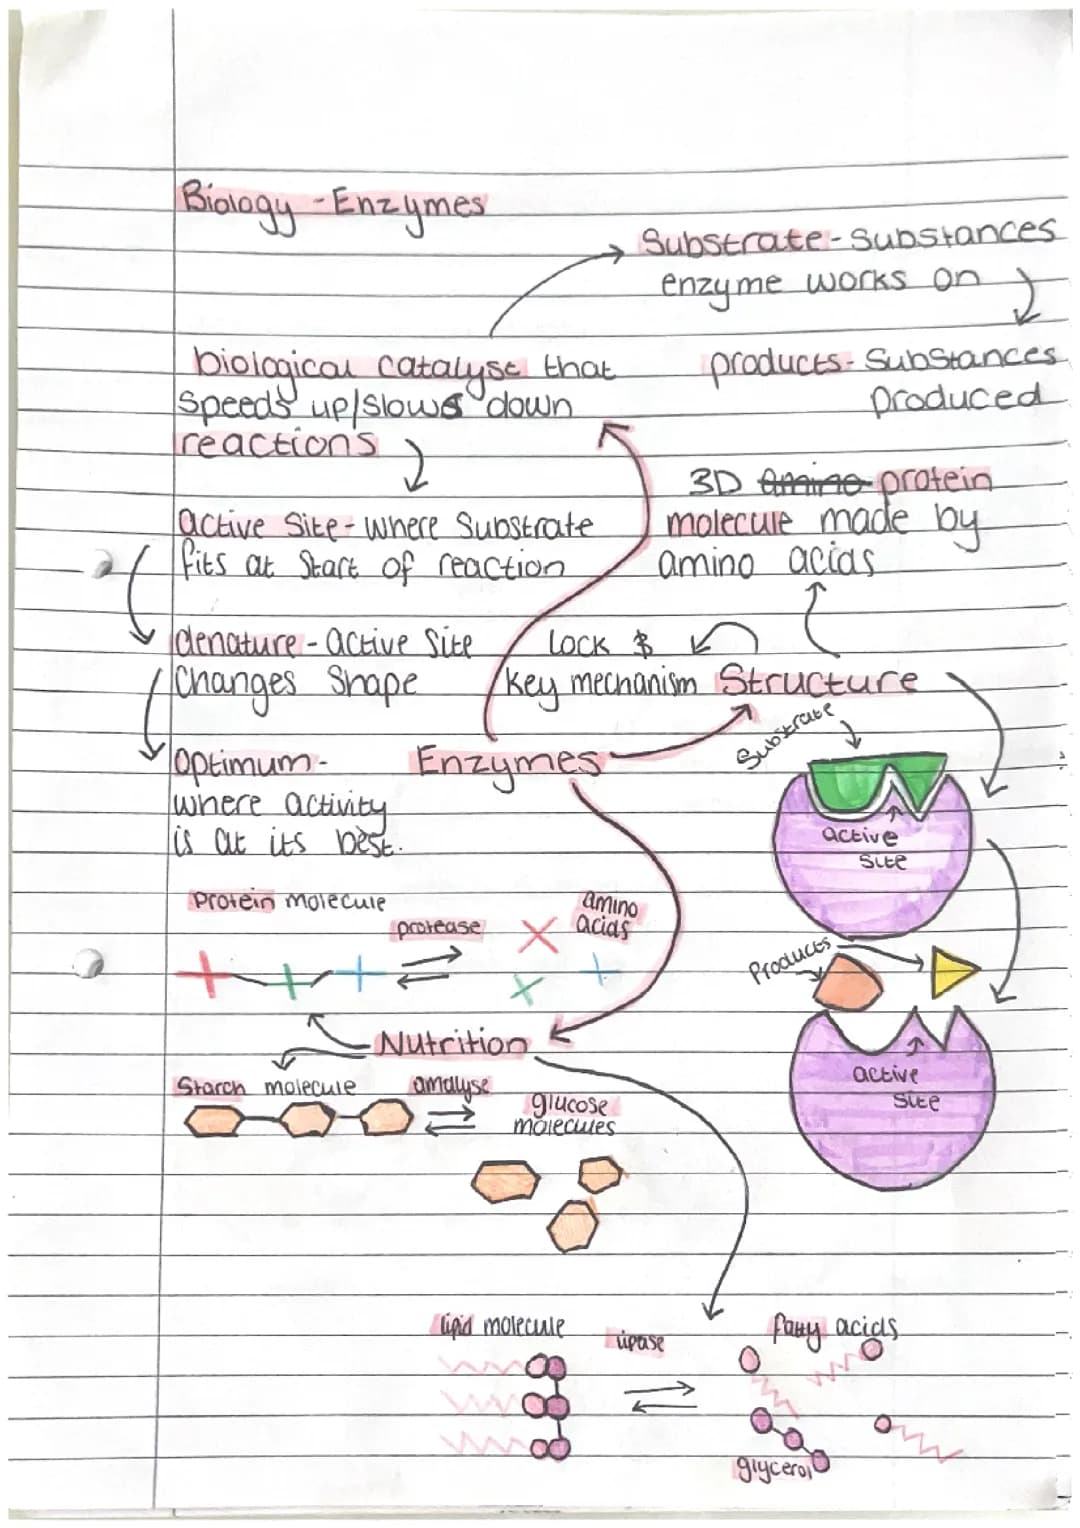 Biology - Enzymes
Substrate - Substances
enzyme works on
biological catalyst that
speeds up/slows down
reactions
products - Substances
produced
3D amino protein
molecule made by
amino acids
active site - where substrate
fits at start of reaction
denature - active site
changes shape
Lock &
key mechanism
Structure
Optimum -
where activity
is at its best.
Enzymes
Substrate
active
site
Protein molecule
protease
amino
acids
Products
Nutrition
active
site
Starch molecule
amalyse
glucose
molecules
lipid molecule
lipase
fatty acids
glycerol